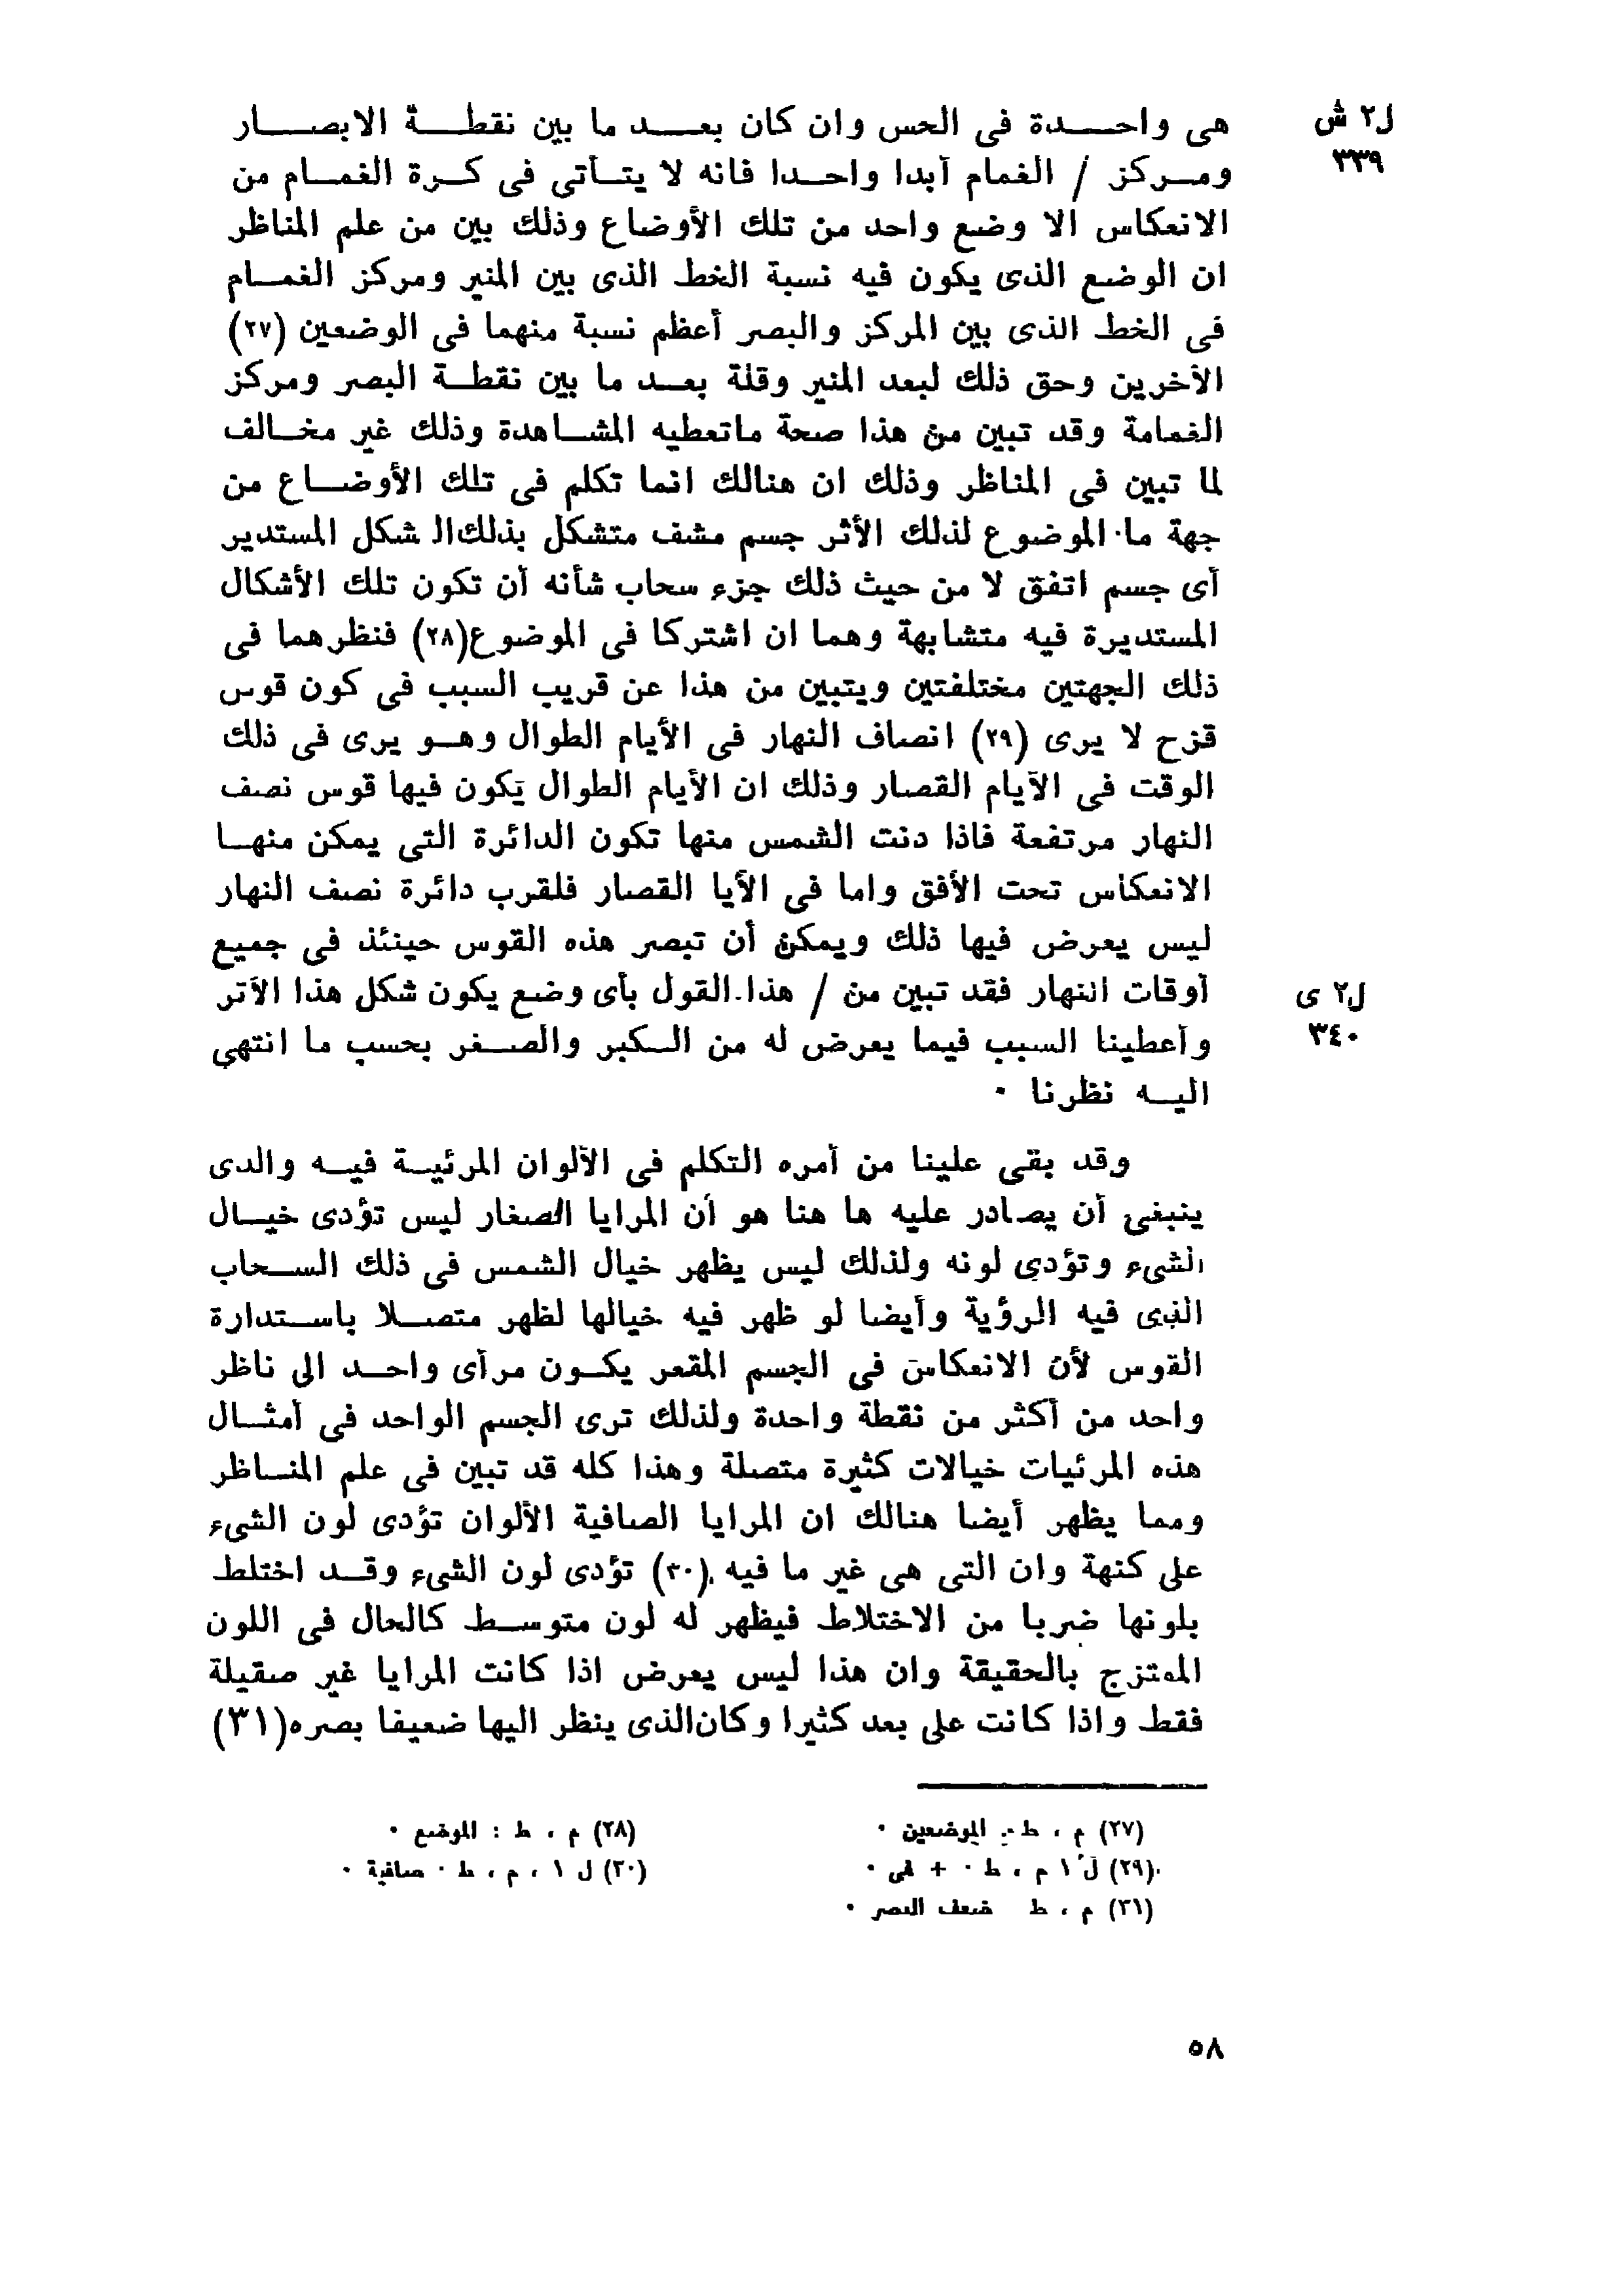 ل٢ ش
٣٣٩
هى واحدة فى الحس وان كان بعد ما بين نقطة الابصار
ومركز / الغمام أبدا واحدا فانه لا يتأتى فى كرة الغمام من
الانعكاس الا وضع واحد من تلك الأوضاع وذلك بين من علم المناظر
ان الوضع الذى يكون فيه نسبة الخط الذى بين المنير ومركز الغمام
فى الخط الذى بين المركز والبصر أعظم نسبة منهما فى الوضعين (٢٧)
الآخرين وحق ذلك لبعد المنير وقلة بعد ما بين نقطة البصر ومركز
الغمامة وقد تبين من هذا صحة ماتعطيه المشاهدة وذلك غير مخالف
لما تبين فى المناظر وذلك ان هنالك انما تكلم فى تلك الأوضاع من
جهة ما الموضوع لذلك الأثر جسم مشف متشكل بذلك‌ال شكل المستدير
أى جسم اتفق لا من حيث ذلك جزء سحاب شأنه أن تكون تلك الأشكال
المستديرة فيه متشابهة وهما ان اشتركا فى الموضوع(٢٨) فنظرهما فى
ذلك الجهتين مختلفتين ويتبين من هذا عن قريب السبب فى كون قوس
قزح لا يرى (٢٩) انصاف النهار فى الأيام الطوال وهو يرى فى ذلك
الوقت فى الأيام القصار وذلك ان الأيام الطوال يكون فيها قوس نصف
النهار مرتفعة فاذا دنت الشمس منها تكون الدائرة التى يمكن منها
الانعكاس تحت الأفق واما فى الأيا القصار فلقرب دائرة نصف النهار
ليس يعرض فيها ذلك ويمكن أن تبصر هذه القوس حينئذ فى جميع
أوقات النهار فقد تبين من / هذا القول بأى وضع يكون شكل هذا الأثر
ل٢ ى
٣٤٠
وأعطينا السبب فيما يعرض له من الكبر والصغر بحسب ما انتهى
اليه نظرنا ٠
وقد بقى علينا من أمره التكلم فى الألوان المرئية فيه والدى
ينبغى أن يصادر عليه ها هنا هو أن المرايا الصغار ليس تؤدى خيال
الشىء وتؤدى لونه ولذلك ليس يظهر خيال الشمس فى ذلك السحاب
الذى فيه الرؤية وأيضا لو ظهر فيه خيالها لظهر متصلا باستدارة
القوس لأن الانعكاس فى الجسم المقعر يكون مرأى واحد الى ناظر
واحد من أكثر من نقطة واحدة ولذلك ترى الجسم الواحد فى أمثال
هذه المرئيات خيالات كثيرة متصلة وهذا كله قد تبين فى علم المناظر
ومما يظهر أيضا هنالك ان المرايا الصافية الألوان تؤدى لون الشىء
على كنهة وان التى هى غير ما فيه (٣٠) تؤدى لون الشىء وقد اختلط
بلونها ضربا من الاختلاط فيظهر له لون متوسط كالحال فى اللون
الممتزج بالحقيقة وان هذا ليس يعرض اذا كانت المرايا غير صقيلة
فقط واذا كانت على بعد كثيرا وكان‌الذى ينظر اليها ضعيفا بصره(٣١)
(٢٧) م ، ط : الموضعين ٠
(٢٨) م ، ط : الموضع ٠
(٢٩) ل ١ م ، ط ٠ + فى ٠
(٣٠) ل ١ ، م ، ط ٠ صافية ٠
(٣١) م ، ط ضعف البصر ٠
٥٨